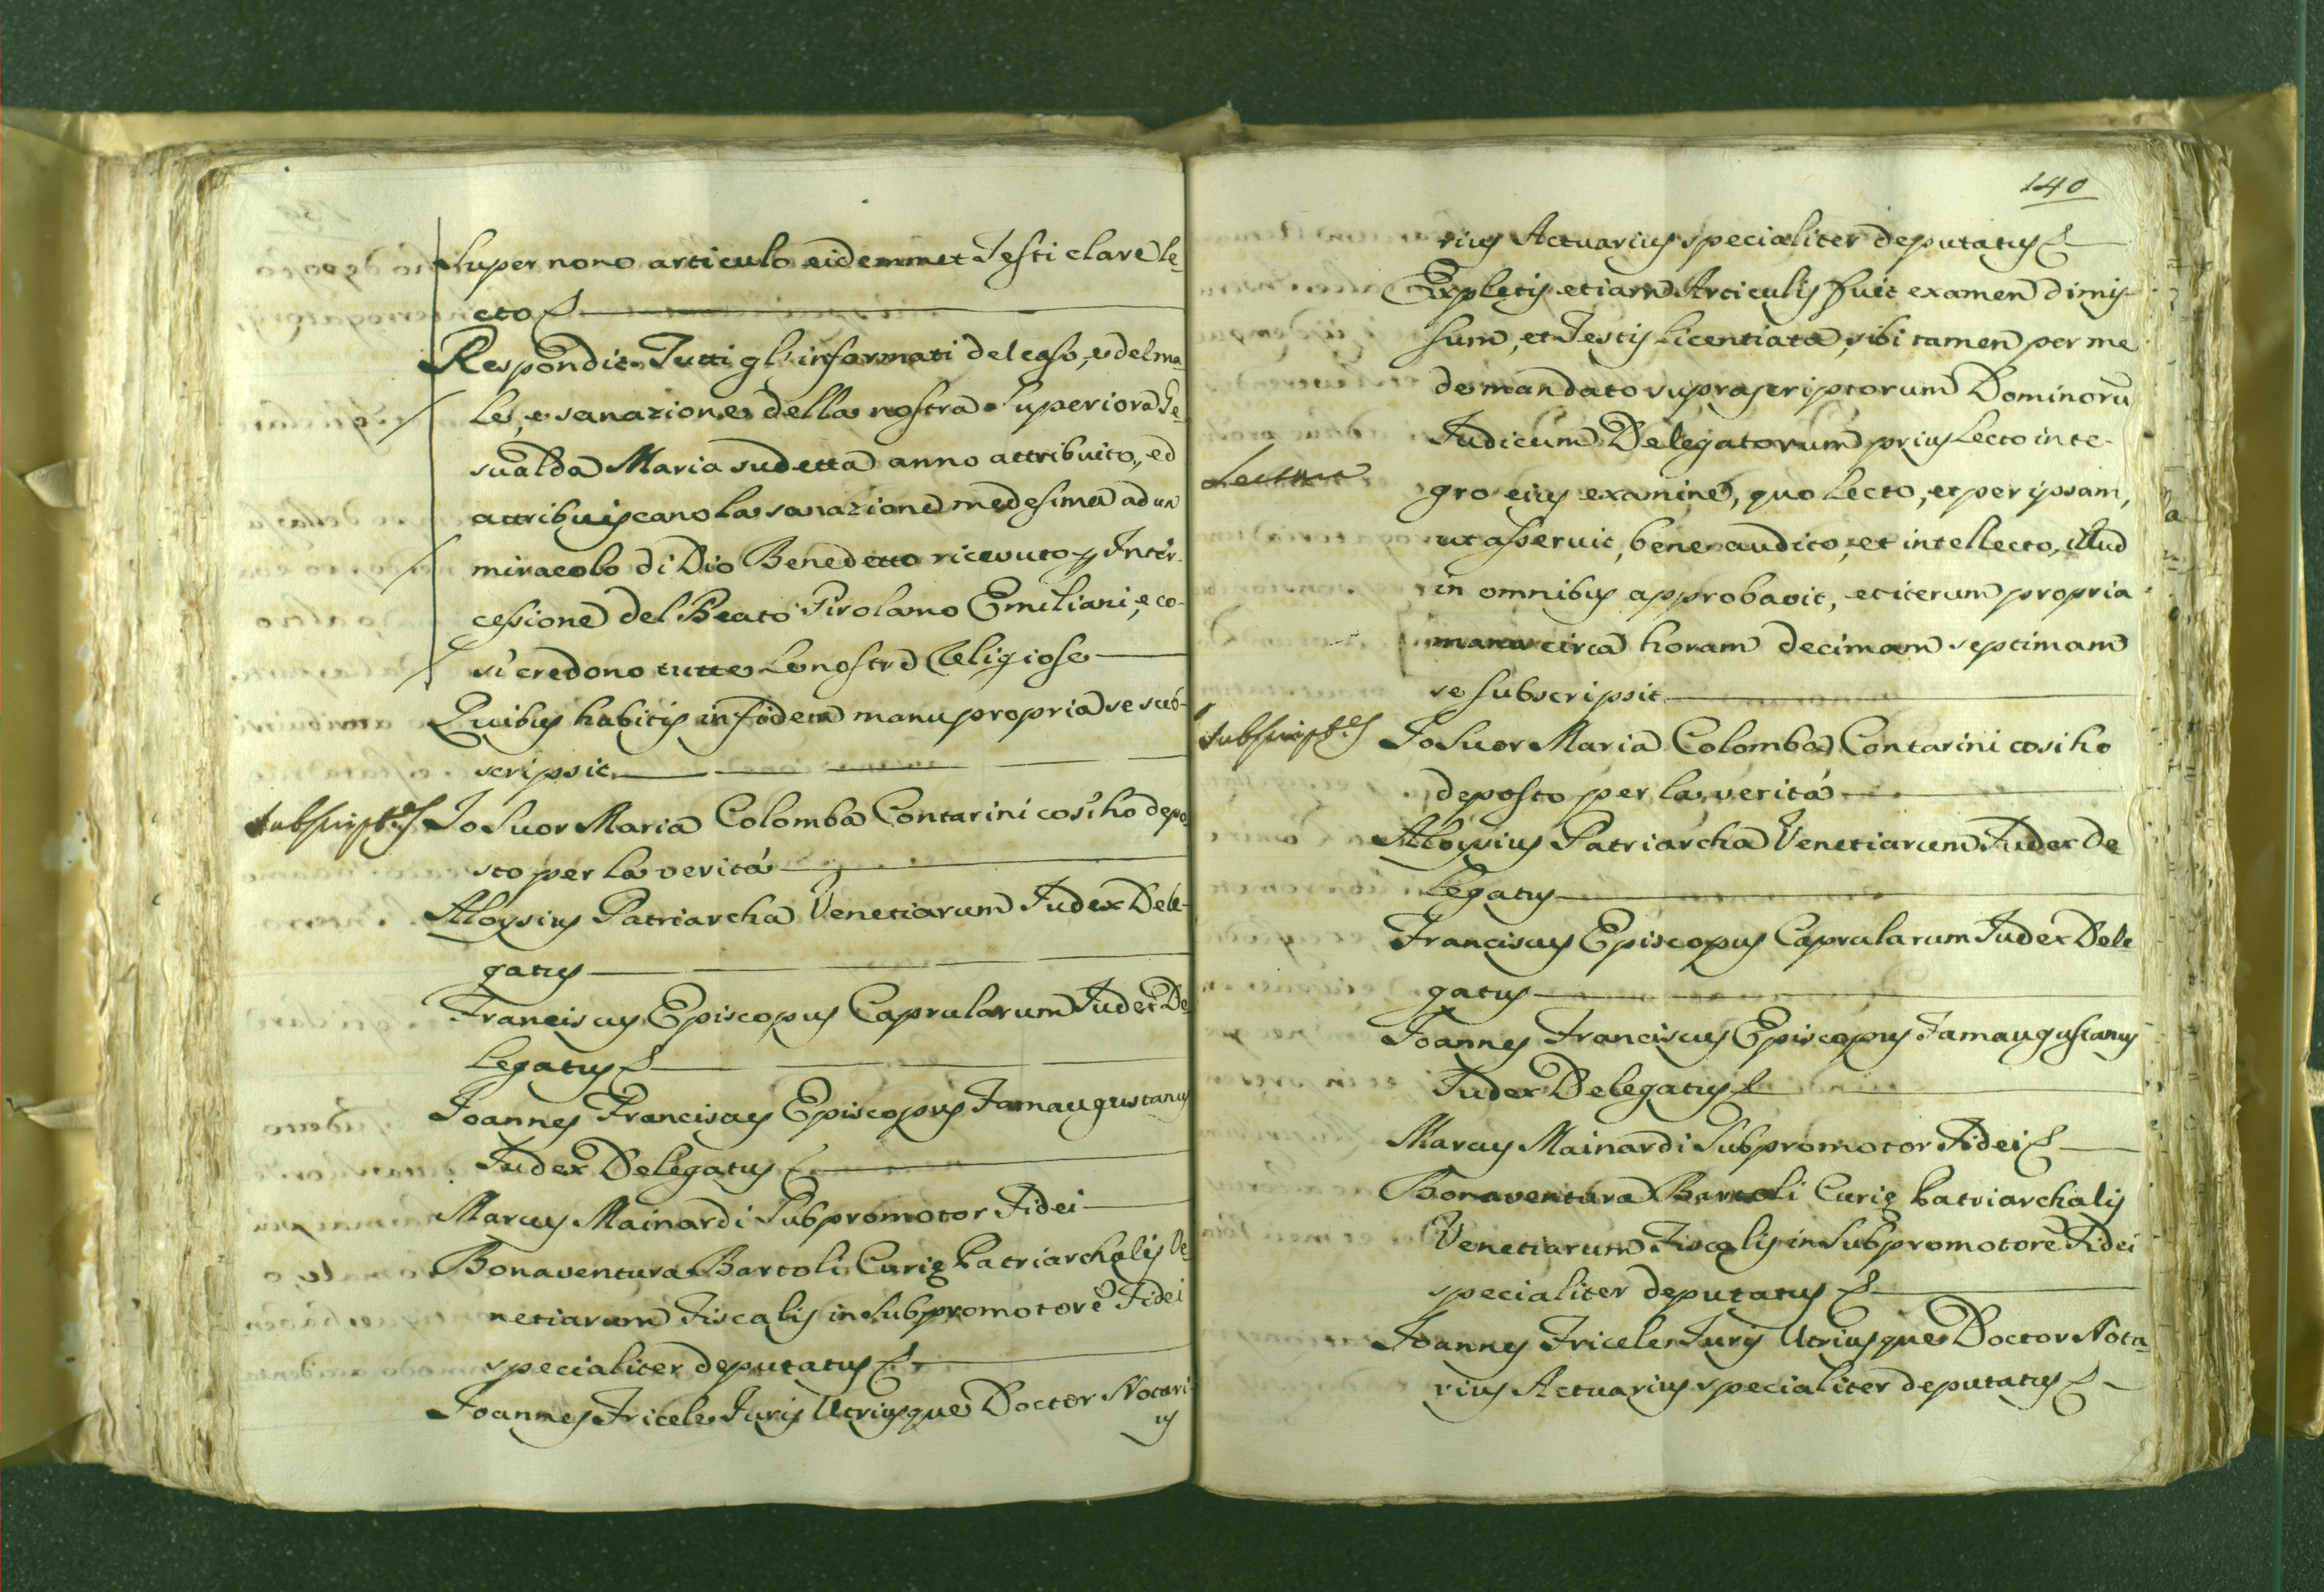 Super nono articulo eidemmet Testi clare le=
cto
Respondit. Tutti gl'informati del caso, e del ma=
le, e sanazione della nostra Superiora Ge=
sualda Maria sudetta anno attribuito, ed
attribuiscano la sanazione medesima ad un
miracolo di Dio Benedetto ricevuto p Inter-
cessione del Beato Girolamo Emiliani, e co-
sì credono tutte le nostre Religiose
Quibus habitis in fidem manu propria se sub-
scripsit
Subscript.es
Io Suor Maria Colomba Contarini così ho depo=
sto per la verità
Aloysius Patriarcha Venetiarum Judex Dele-
gatus
Franciscus Episcopus Caprularum Judex De=
legatus
Joannes Franciscus Episcopus Famaugustanus
Judex Delegatus
Marcus Mainardi Subpromotor Fidei
Bonaventura Bartoli Curię Patriarchalis Ve=
netiarum Fiscalis in Subpromotorē Fidei
specialiter deputatus
Joannes Fricele Juris Utriusque Doctor Notari-
us
140
rius Actuarius specialiter deputatus
Expletis etiam Articulis fuit examen dimis-
sum, et Testis licentiata, sibi tamen per me
de mandato suprascriptorum Dominorū
Judicum Delegatorum prius lecto inte-
Lectura
gro eius examine, quo lecto, et per ipsam,
ut asseruit, bene audito, et intellecto, illud
in omnibus approbavit, et iterum propria
manu circa horam decimam septimam
se subscripsit
Subscript.es
Io Suor Maria Colomba Contarini così ho
deposto per la verità
Aloysius Patriarcha Venetiarum Judex De
legatus
Franciscus Episcopus Caprularum Judex Dele
gatus
Joannes Franciscus Episcopus Famaugustanus
Judex Delegatus
Marcus Mainardi Subpromotor Fidei
Bonaventura Bartoli Curię Patriarchalis
Venetiarum Fiscalis in Subpromotorē Fidei
specialiter deputatus
Joannes Fricele Juris Utriusque Doctor Nota=
rius Actuarius specialiter deputatus